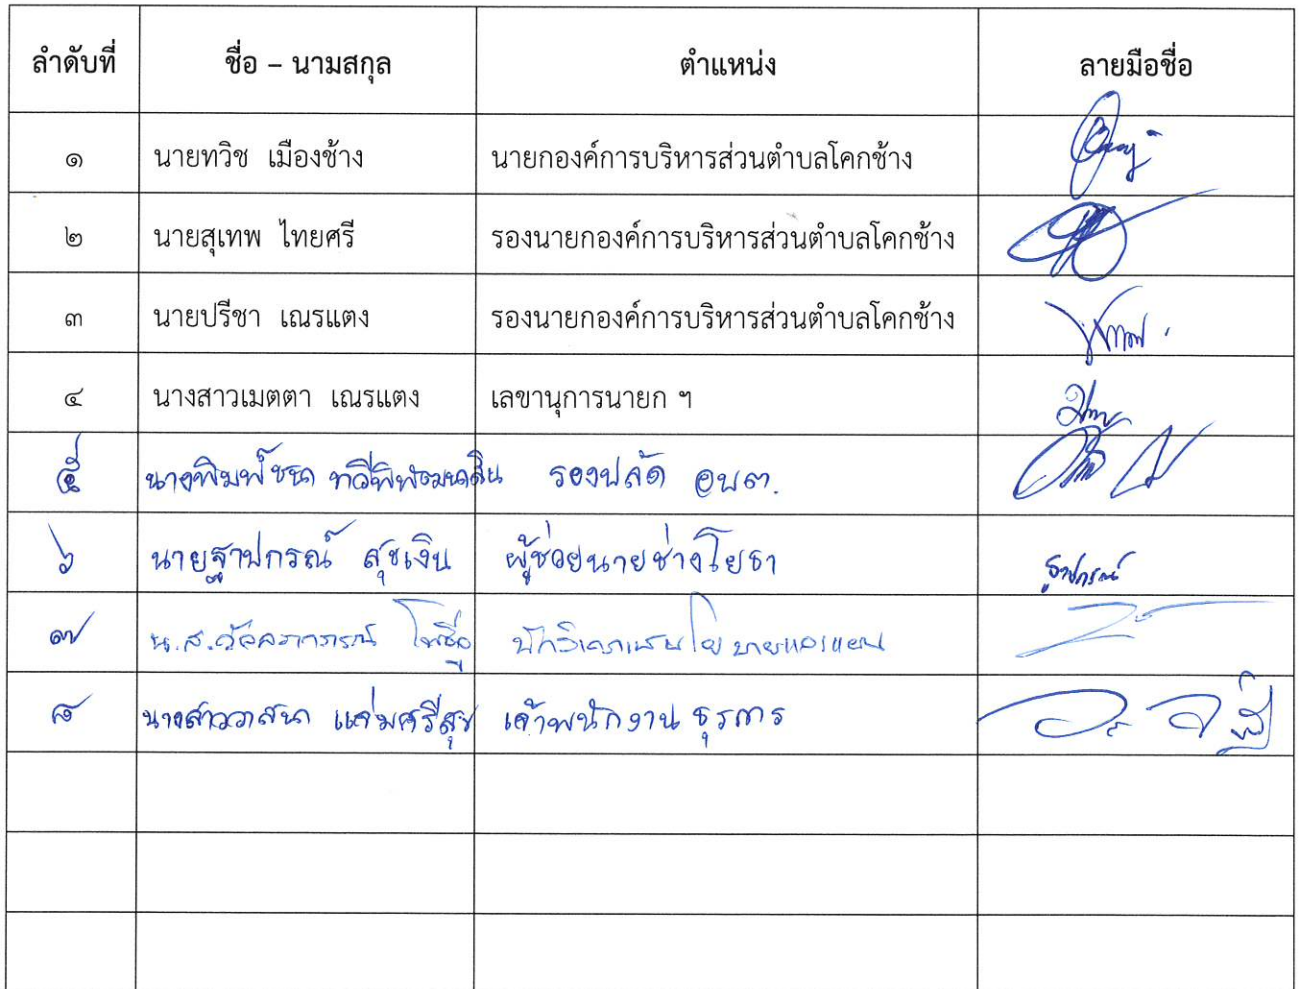 ลำดับที่ ชื่อ – นามสกุล ตำแหน่ง ลายมือชื่อ
๑ นายทวิช เมืองช้าง นายกองค์การบริหารส่วนตำบลโคกช้าง
๒ นายสุเทพ ไทยศรี รองนายกองค์การบริหารส่วนตำบลโคกช้าง
๓ นายปรีชา เณรแตง รองนายกองค์การบริหารส่วนตำบลโคกช้าง
๔ นางสาวเมตตา เณรแตง เลขานุการนายก ฯ
๕ นางพิมพ์ชนก รองปลัด อบต.
๖ นายฐาปกรณ์ สุขเงิน ผู้ช่วยนายช่างโยธา ฐาปกรณ์
๗ น.ส. นักวิเคราะห์นโยบายและแผน
๘ นางสาววาสนา แช่มศรีสุข เจ้าพนักงานธุรการ